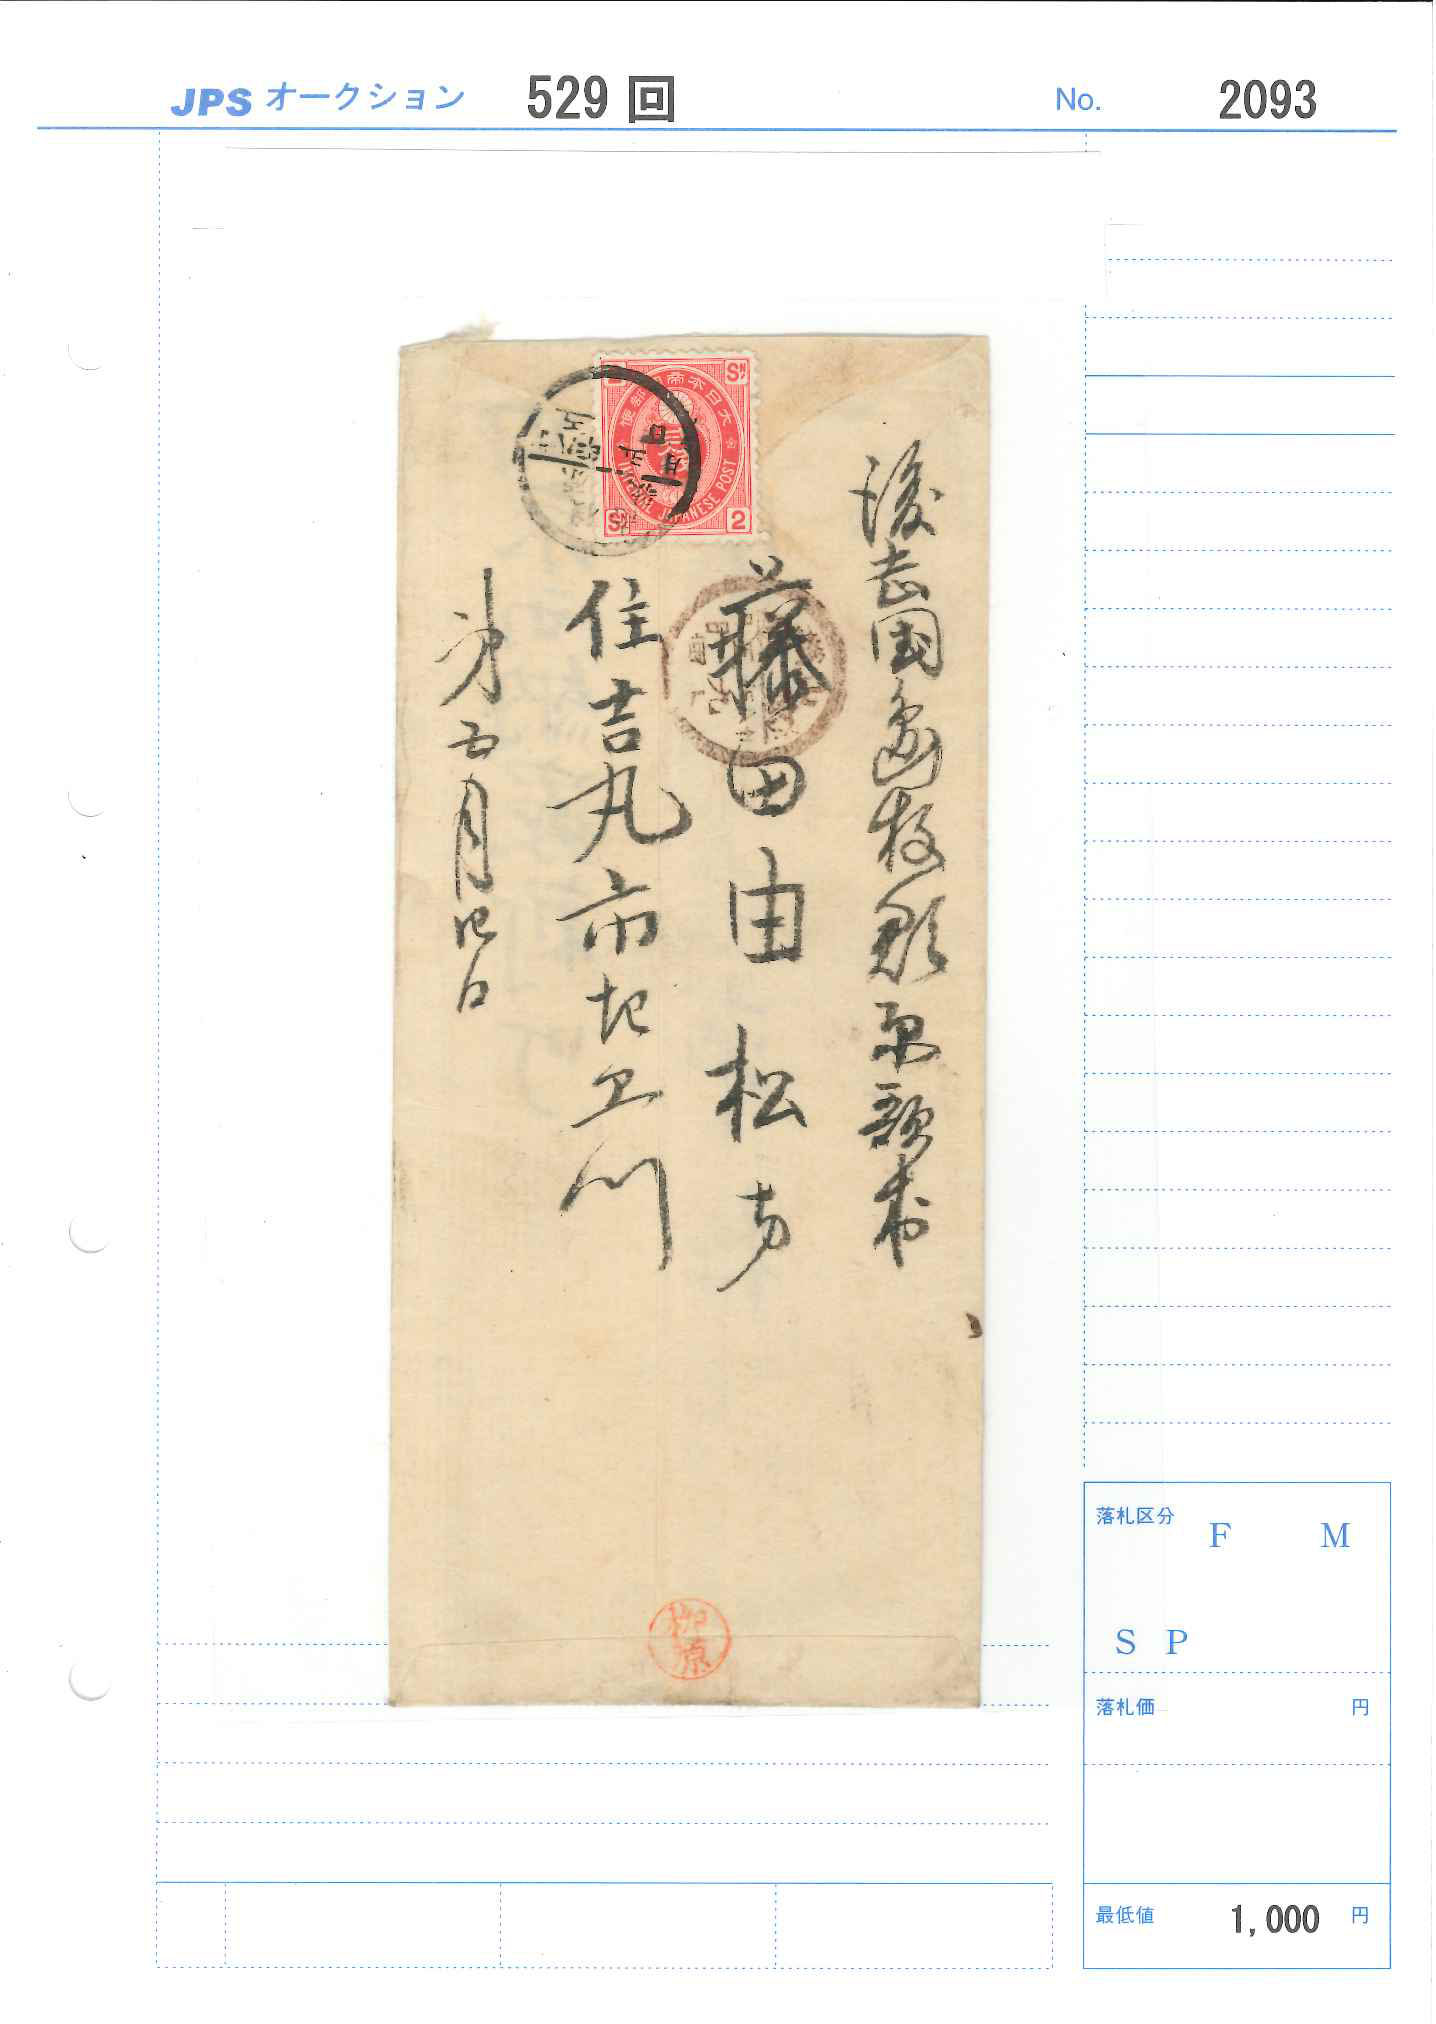 JPS オークション 529 回 No. 2093
大日本帝国郵便
IMPERIAL JAPANESE POST
SN 2
後志国島牧郡原歌村
藤田由松方
住吉丸市
第五月四日
柳原
落札区分 F M
S P
落札価 円
最低値 1,000 円